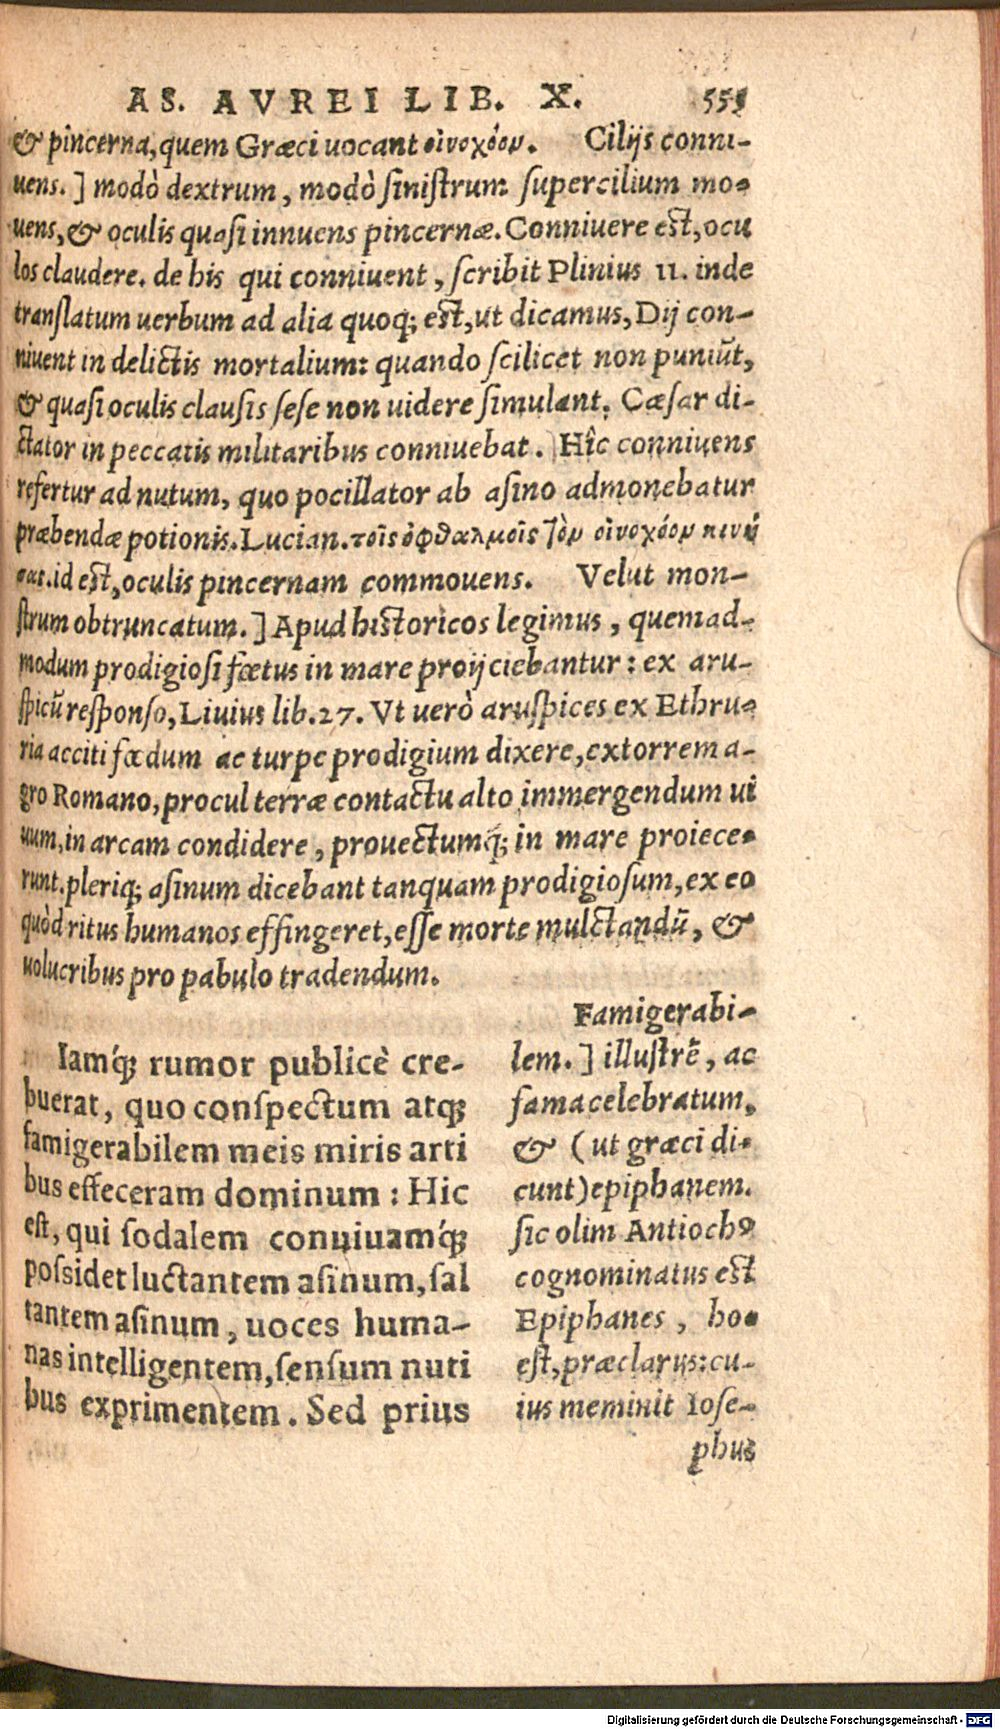 AS. AVREI LIB. X. 555
& pincerna, quem Græci uocant οἰνοχόον. Cilijs conni-
uens.] modò dextrum, modò sinistrum supercilium mo-
uens, & oculis quasi innuens pincernæ. Conniuere est, ocu
los claudere. de his qui conniuent, scribit Plinius 11. inde
translatum uerbum ad alia quoq; est, ut dicamus, Dij con-
niuent in delictis mortalium: quando scilicet non puniūt,
& quasi oculis clausis sese non uidere simulant. Cæsar di-
ctator in peccatis militaribus conniuebat. Hîc conniuens
refertur ad nutum, quo pocillator ab asino admonebatur
præbendæ potionis. Lucian. τοῖς ὀφθαλμοῖς τὸν οἰνοχόον κινή
σας. id est, oculis pincernam commouens. Velut mon-
strum obtruncatum.] Apud historicos legimus, quemad-
modum prodigiosi fœtus in mare proijciebantur: ex aru-
spicū responso, Liuius lib. 27. Vt uerò aruspices ex Ethru-
ria acciti fœdum ac turpe prodigium dixere, extorrem a-
gro Romano, procul terræ contactu alto immergendum ui
uum, in arcam condidere, prouectumq́; in mare proiece-
runt. pleriq; asinum dicebant tanquam prodigiosum, ex eo
quòd ritus humanos effingeret, esse morte mulctandū, &
uolucribus pro pabulo tradendum.
Iamq́; rumor publicè cre-
buerat, quo conspectum atq;
famigerabilem meis miris arti
bus effeceram dominum: Hic
est, qui sodalem conuiuamq́;
possidet luctantem asinum, sal
tantem asinum, uoces huma-
nas intelligentem, sensum nuti
bus exprimentem. Sed prius
Famigerabi-
lem.] illustrē, ac
fama celebratum,
& (ut græci di-
cunt) epiphanem.
sic olim Antiochꝰ
cognominatus est
Epiphanes, hoc
est, præclarus: cu-
ius meminit Iose-
phus
Digitalisierung gefördert durch die Deutsche Forschungsgemeinschaft - DFG